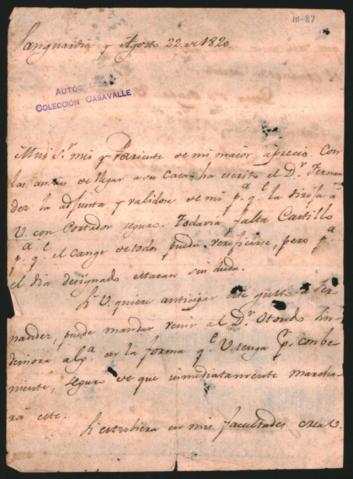 111-87
Sanguaitú y Agosto 22 de 1820
AUTÓGRAFO
COLECCIÓN CASAVALLE
Mui Sr mio y Pariente de mi maior aprecio. Con
las ansias de llegar a su Casa, ha escrito el Dr. Fernan
dez la adjunta y validose de mi pa. qe. la dirija a
V. con Portador seguro. Todavia falta Castillo
pa. qe. el cange de todos pueda verificarse, pero pa.
el dia designado estaran sin duda.
Si V. quiere anticipar este gusto a Fer
nandez, puede mandar venir al Dr. Otondo sin
demora alga. en la forma qe. V. tenga pr. conbe
niente, seguro de que inmediatamente marcha
rá este.
Si estubiera en mis facultades crea V.